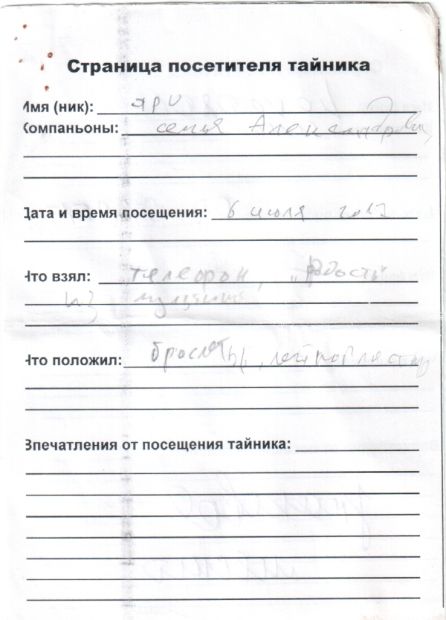 Страница посетителя тайника
Имя (ник): яри
Компаньоны: семья
Дата и время посещения: 6 июля
Что взял: телефон,
из
Что положил: браслеты, лейкопластырь
Впечатления от посещения тайника: